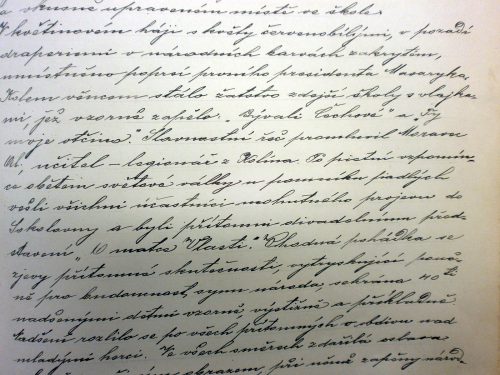 a vkusně upraveném místě ve škole.
V květinovém háji s květy červenobílými, v pozadí
draperiemi v národních barvách zakrytém,
umístěno poprsí prvního presidenta Masaryka,
Kolem věncem stálo žactvo zdejší školy s vlajka-
mi, jež vzorně zapělo „Bývali Čechové" a „Ty
moje otčino". Slavnostní řeč promluvil Moravec
Al., učitel - legionář z Kolína. Po pietní vzpomín-
ce obětem světové války u pomníku padlých
vešli všichni účastníci mohutného projevu do
Sokolovny a byli přítomni divadelnímu před-
stavení „O matce Vlasti". Vhodná pohádka se
zjevy přítomné skutečnosti, vytryskující pouč-
ně pro budoucnost svým národa, sehrána 40ti
nadšenými dětmi vzorně, výstižně a příkladně.
Nadšení rozlilo se po všech přítomných o obdivu nad
mladými herci. Ve všech směrech zdařilá oslava
obrazem, při němž zapěny národ-